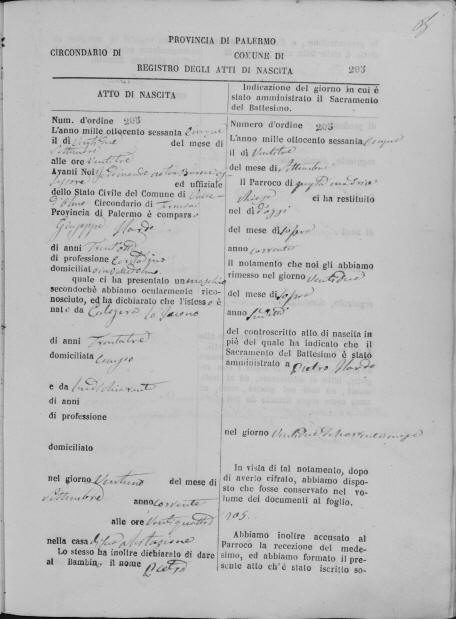 PROVINCIA DI PALERMO
CIRCONDARIO DI COMUNE DI
REGISTRO DEGLI ATTI DI NASCITA
203
ATTO DI NASCITA
Num. d'ordine 203
L'anno mille ottocento sessanta cinque
il dì ventidue del mese di
Settembre
alle ore ventitre
Avanti Noi
ed uffiziale
dello Stato Civile del Comune di
Circondario di
Provincia di Palermo è comparso
Giuseppe Nardo
di anni
di professione contadino
domiciliato
quale ci ha presentato un maschio
secondochè abbiamo ocularmente rico-
nosciuto, ed ha dichiarato che l'istesso è
nato da Calogera lo
di anni Trentatre
domiciliata
e da
di anni
di professione
domiciliato
nel giorno Ventuno del mese di
Settembre
anno corrente
alle ore ventiquattro
nella casa di sua abitazione
Lo stesso ha inoltre dichiarato di dare
al Bambin. il nome Pietro
Indicazione del giorno in cui è
stato amministrato il Sacramento
del Battesimo.
Numero d'ordine 203
L'anno mille ottocento sessanta cinque
il dì Ventitre
del mese di Settembre
Il Parroco di questa madrice
chiesa ci ha restituito
nel dì d'oggi
del mese di sopra
anno corrente
il notamento che noi gli abbiamo
rimesso nel giorno Ventidue
del mese di sopra
anno
del controscritto atto di nascita in
piè del quale ha indicato che il
Sacramento del Battesimo è stato
amministrato a Pietro Nardo
nel giorno Ventidue
In visia di tal notamento, dopo
di averlo cifrato, abbiamo dispo-
sto che fosse conservato nel vo-
lume dei documenti al foglio.
Abbiamo inoltre accusato al
Parroco la recezione del mede-
simo, ed abbiamo formato il pre-
sente atto ch'è stato iscritto so-